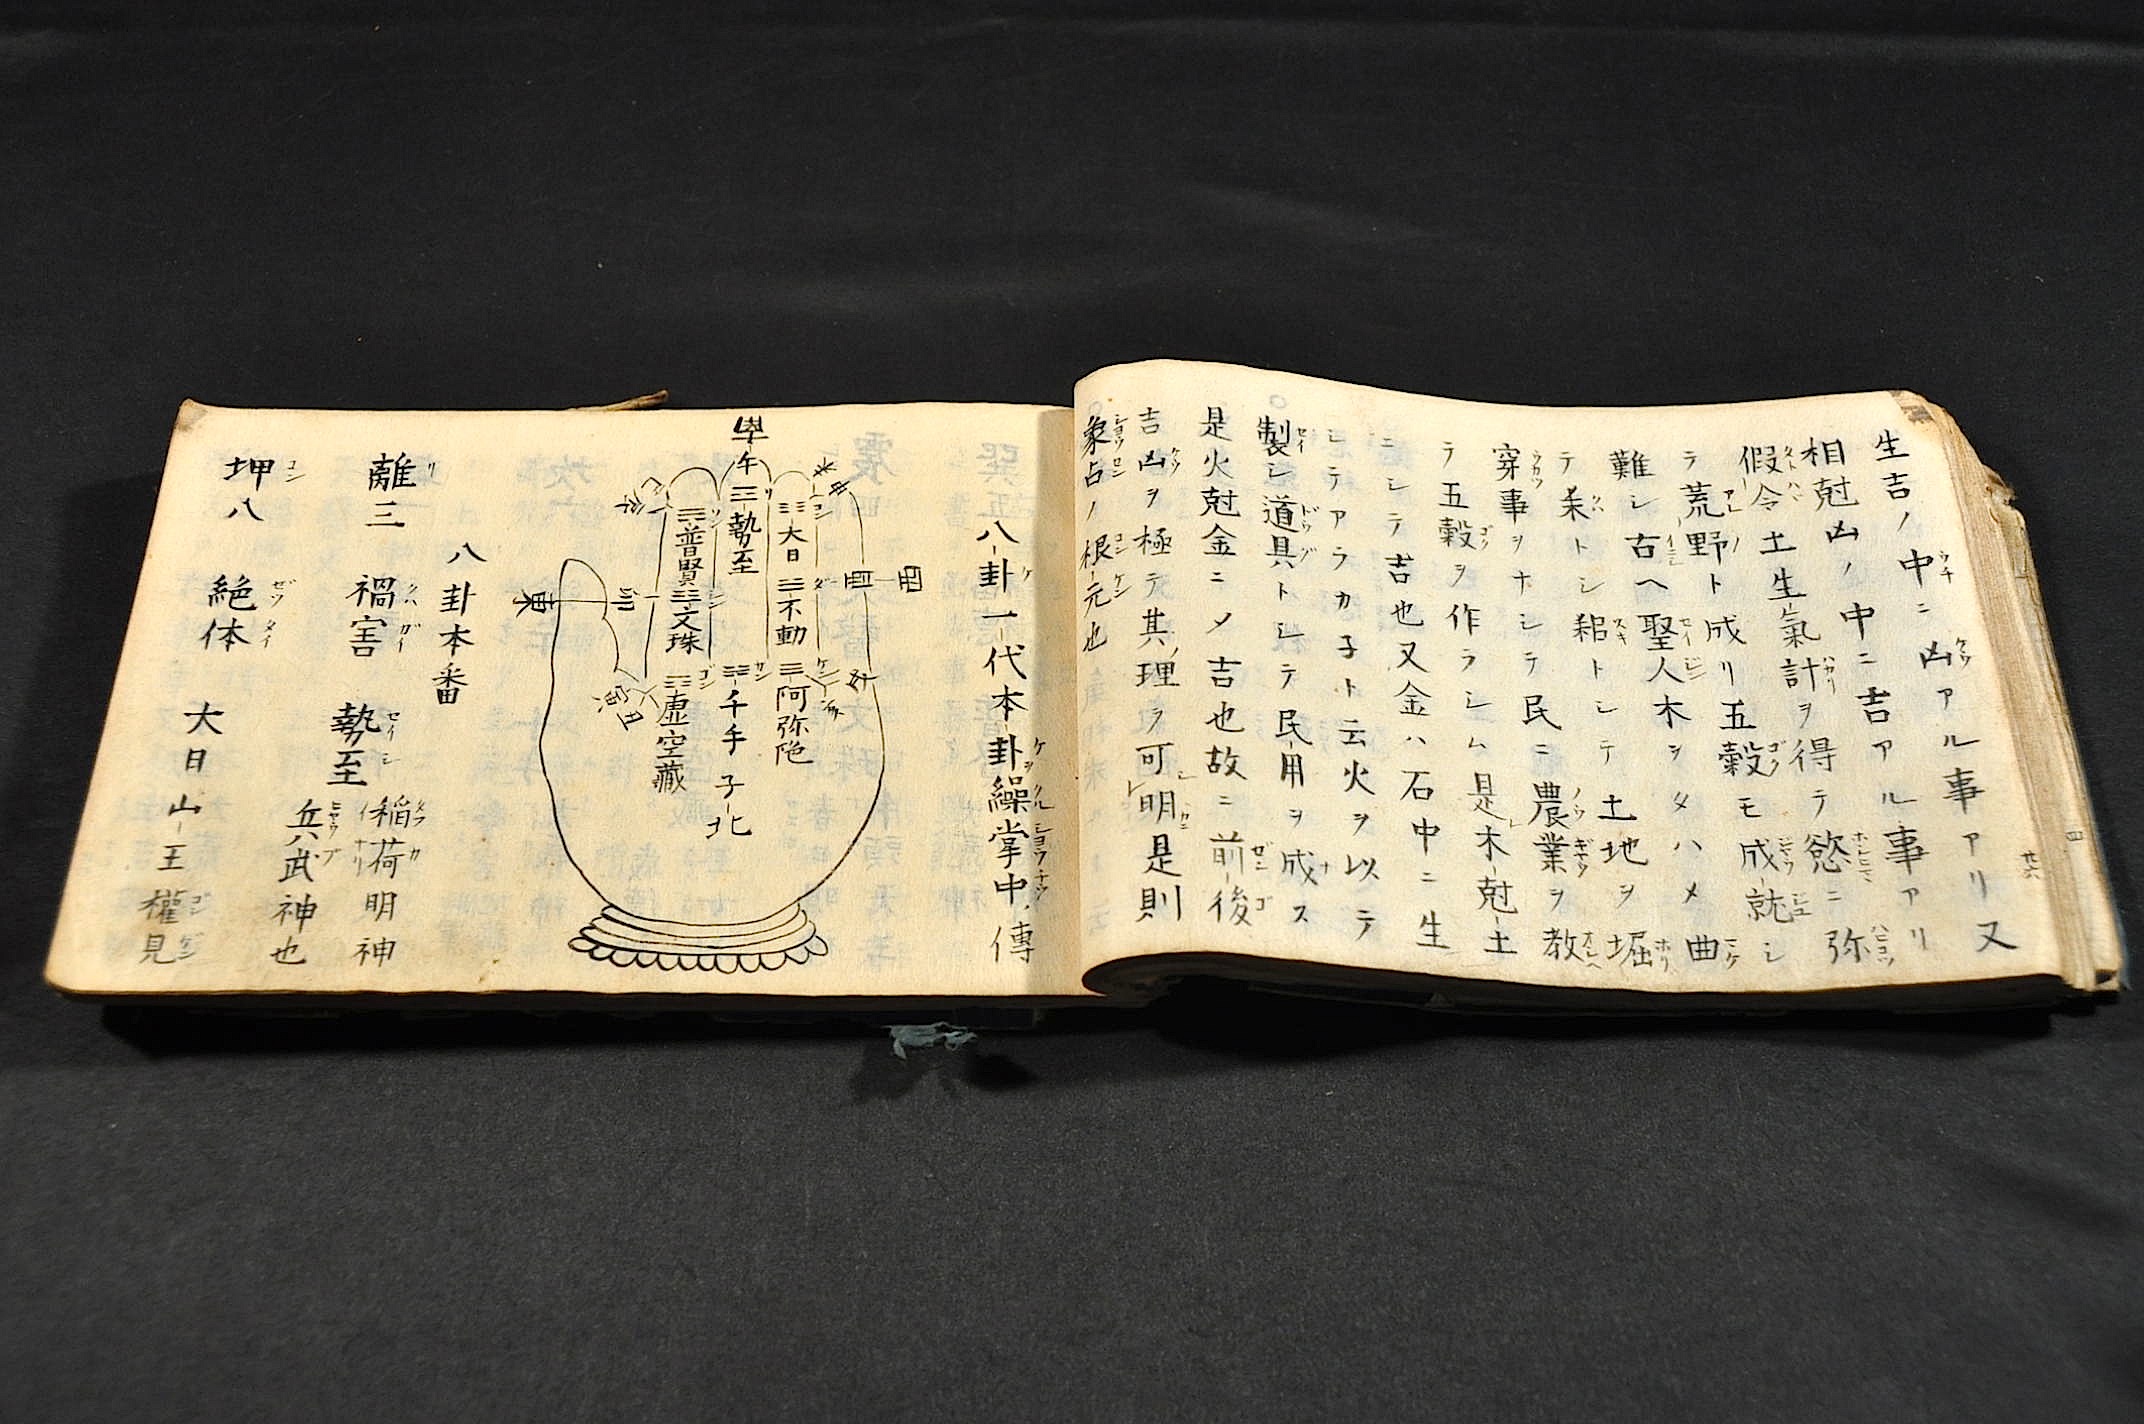 生吉ノ中ニ凶アル事アリ又
相尅凶ノ中ニ吉アル事アリ
假令土生氣計ヲ得テ慾ニ弥
ラ荒野ト成リ五穀モ成就シ
難シ古ヘ聖人木ヲタハメ曲
テ耒トシ耜トシテ土地ヲ堀
穿事ヲナシテ民ニ農業ヲ教
テ五穀ヲ作ラシム是木尅土
ニシテ吉也又金ハ石中ニ生
シテアラカネト云火ヲ以テ
製シ道具トシテ民用ヲ成ス
是火尅金ニメ吉也故ニ前後
吉凶ヲ極テ其理ヲ可明是則
象占ノ根元也
八卦一代本卦繰掌中傳
西
酉
未
申
大日
不動
阿弥陀
戌
亥
午
勢至
千手
子
北
巳
辰
普賢
文珠
虚空藏
丑
寅
卯
東
八卦本番
離三 禍害 勢至 稲荷明神
兵武神也
坤八 絶体 大日 山王權見